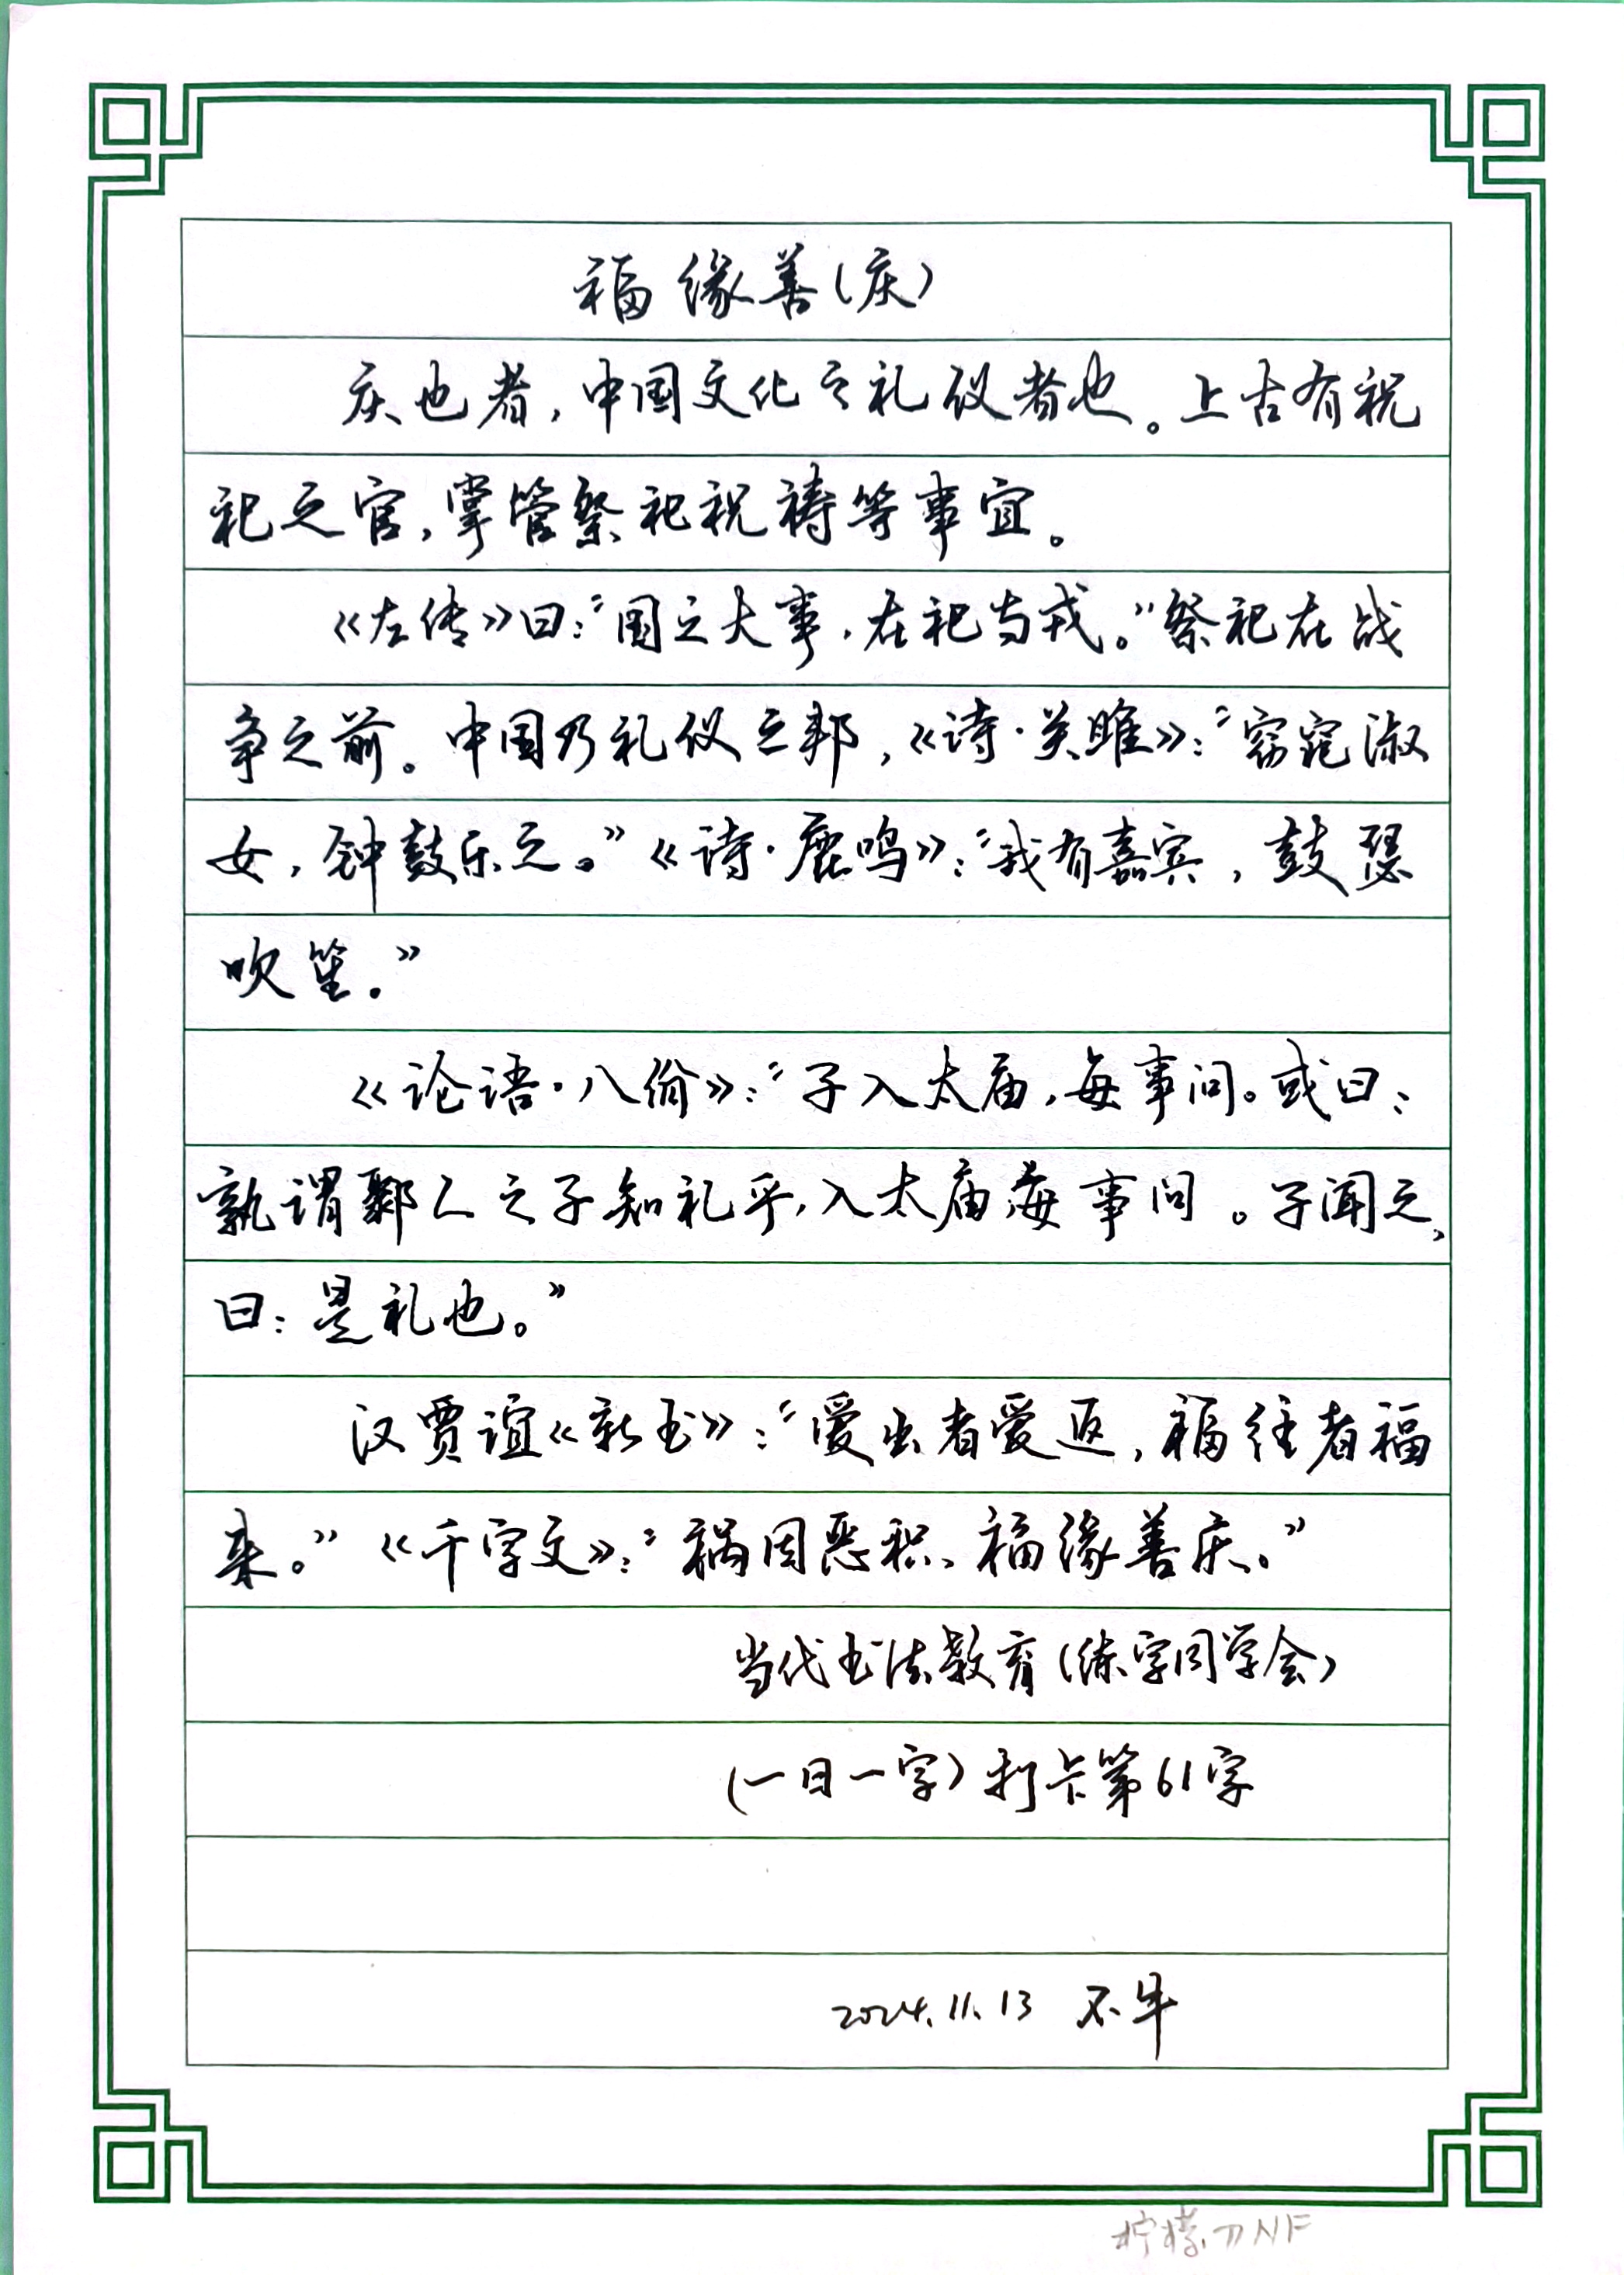 福缘善(庆)
庆也者,中国文化之礼仪者也。上古有祝
祀之官,掌管祭祀祝祷等事宜。
《左传》曰:“国之大事,在祀与戎。”祭祀在战
争之前。中国乃礼仪之邦,《诗·关雎》:“窈窕淑
女,钟鼓乐之。”《诗·鹿鸣》:“我有嘉宾,鼓瑟
吹笙。”
《论语·八佾》:“子入太庙,每事问。或曰:
孰谓鄹人之子知礼乎,入太庙,每事问。子闻之,
曰:是礼也。”
汉贾谊《新书》:“爱出者爱返,福往者福
来。”《千字文》:“祸因恶积、福缘善庆。”
当代书法教育(练字同学会)
(一日一字)打卡第61字
2024.11.13 不牛
柠檬 NF